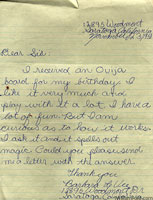 12895 Woodmont
Saratoga California
Dear Sir.
I received an Ouija
board for my birthday. I
like it very much. I've
play with it a lot. I have a
lot of fun. But I am
curious as to how it works.
I ask it and it spells out
magic. Could you please send
me a letter with the answer.
Thank you
Barbara
12895 Woodmont Dr
Saratoga California